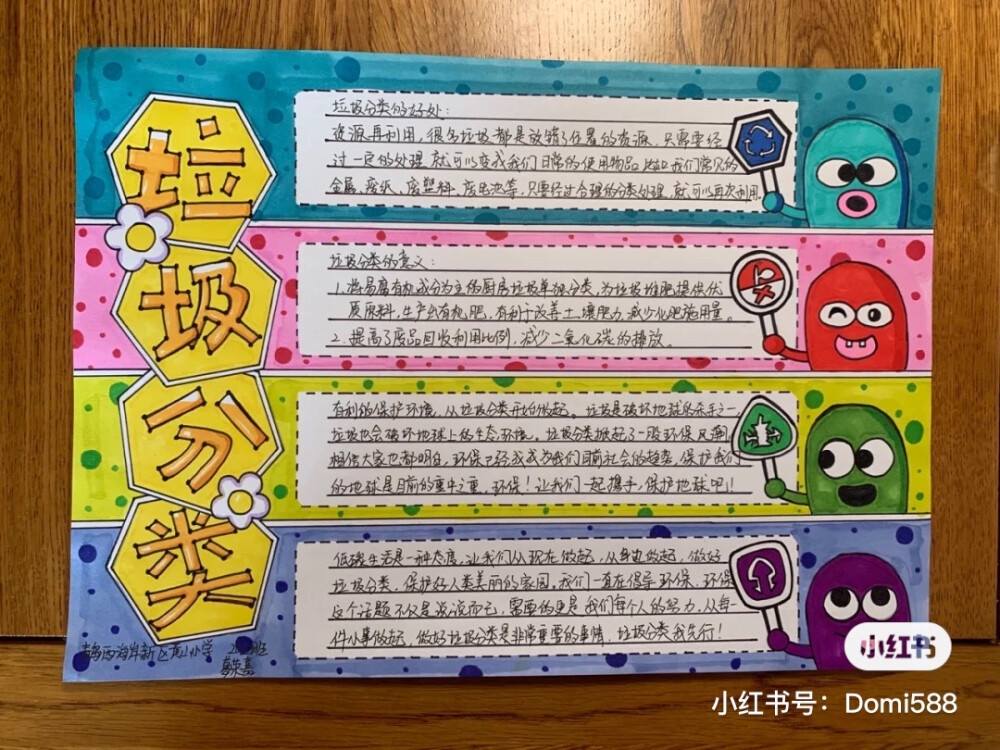 垃圾分类
垃圾分类的好处:
资源再利用,很多垃圾都是放错了位置的资源,只需要经
过一定的处理,就可以变成我们日常的使用物品,比如我们常见的
金属、废纸、废塑料、废电池等,只要经过合理的分类处理,就可以再次利用
垃圾分类的意义:
1.将易腐有机成分为主的厨房垃圾单独分类,为垃圾堆肥提供优
质原料,生产出有机肥,有利于改善土壤肥力,减少化肥施用量。
2.提高了废品回收利用比例,减少二氧化碳的排放。
有利的保护环境,从垃圾分类开始做起。垃圾是破坏地球的杀手之一,
垃圾也会破坏地球上的生态环境。垃圾分类掀起了一股环保风潮
相信大家也都明白,环保已经成为我们目前社会的趋势,保护我们
的地球是目前的重中之重,环保!让我们一起携手,保护地球吧!!
低碳生活是一种态度,让我们从现在做起,从身边做起,做好
垃圾分类,保护好人类美丽的家园。我们一直在倡导环保,环保
这个话题不仅是说说而已,需要的更是我们每个人的努力,从每一
件小事做起,做好垃圾分类是非常重要的事情,垃圾分类我先行!
西海岸新区 小学
小红书
小红书号:Domi588